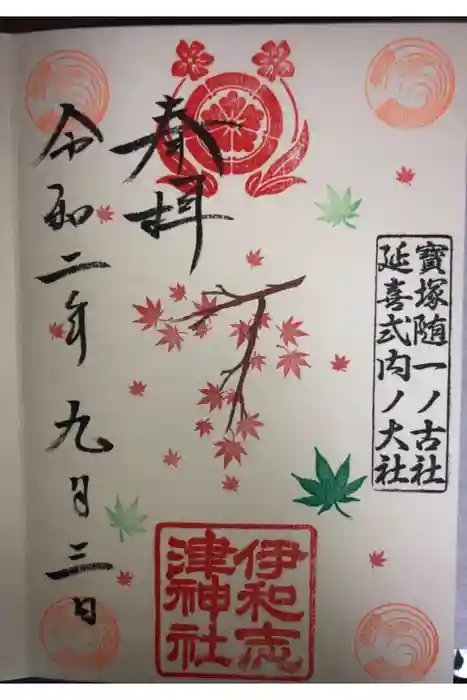 寶塚随一ノ古社
延喜式内ノ大社
奉拝
令和二年九月三日
伊和志
津神社